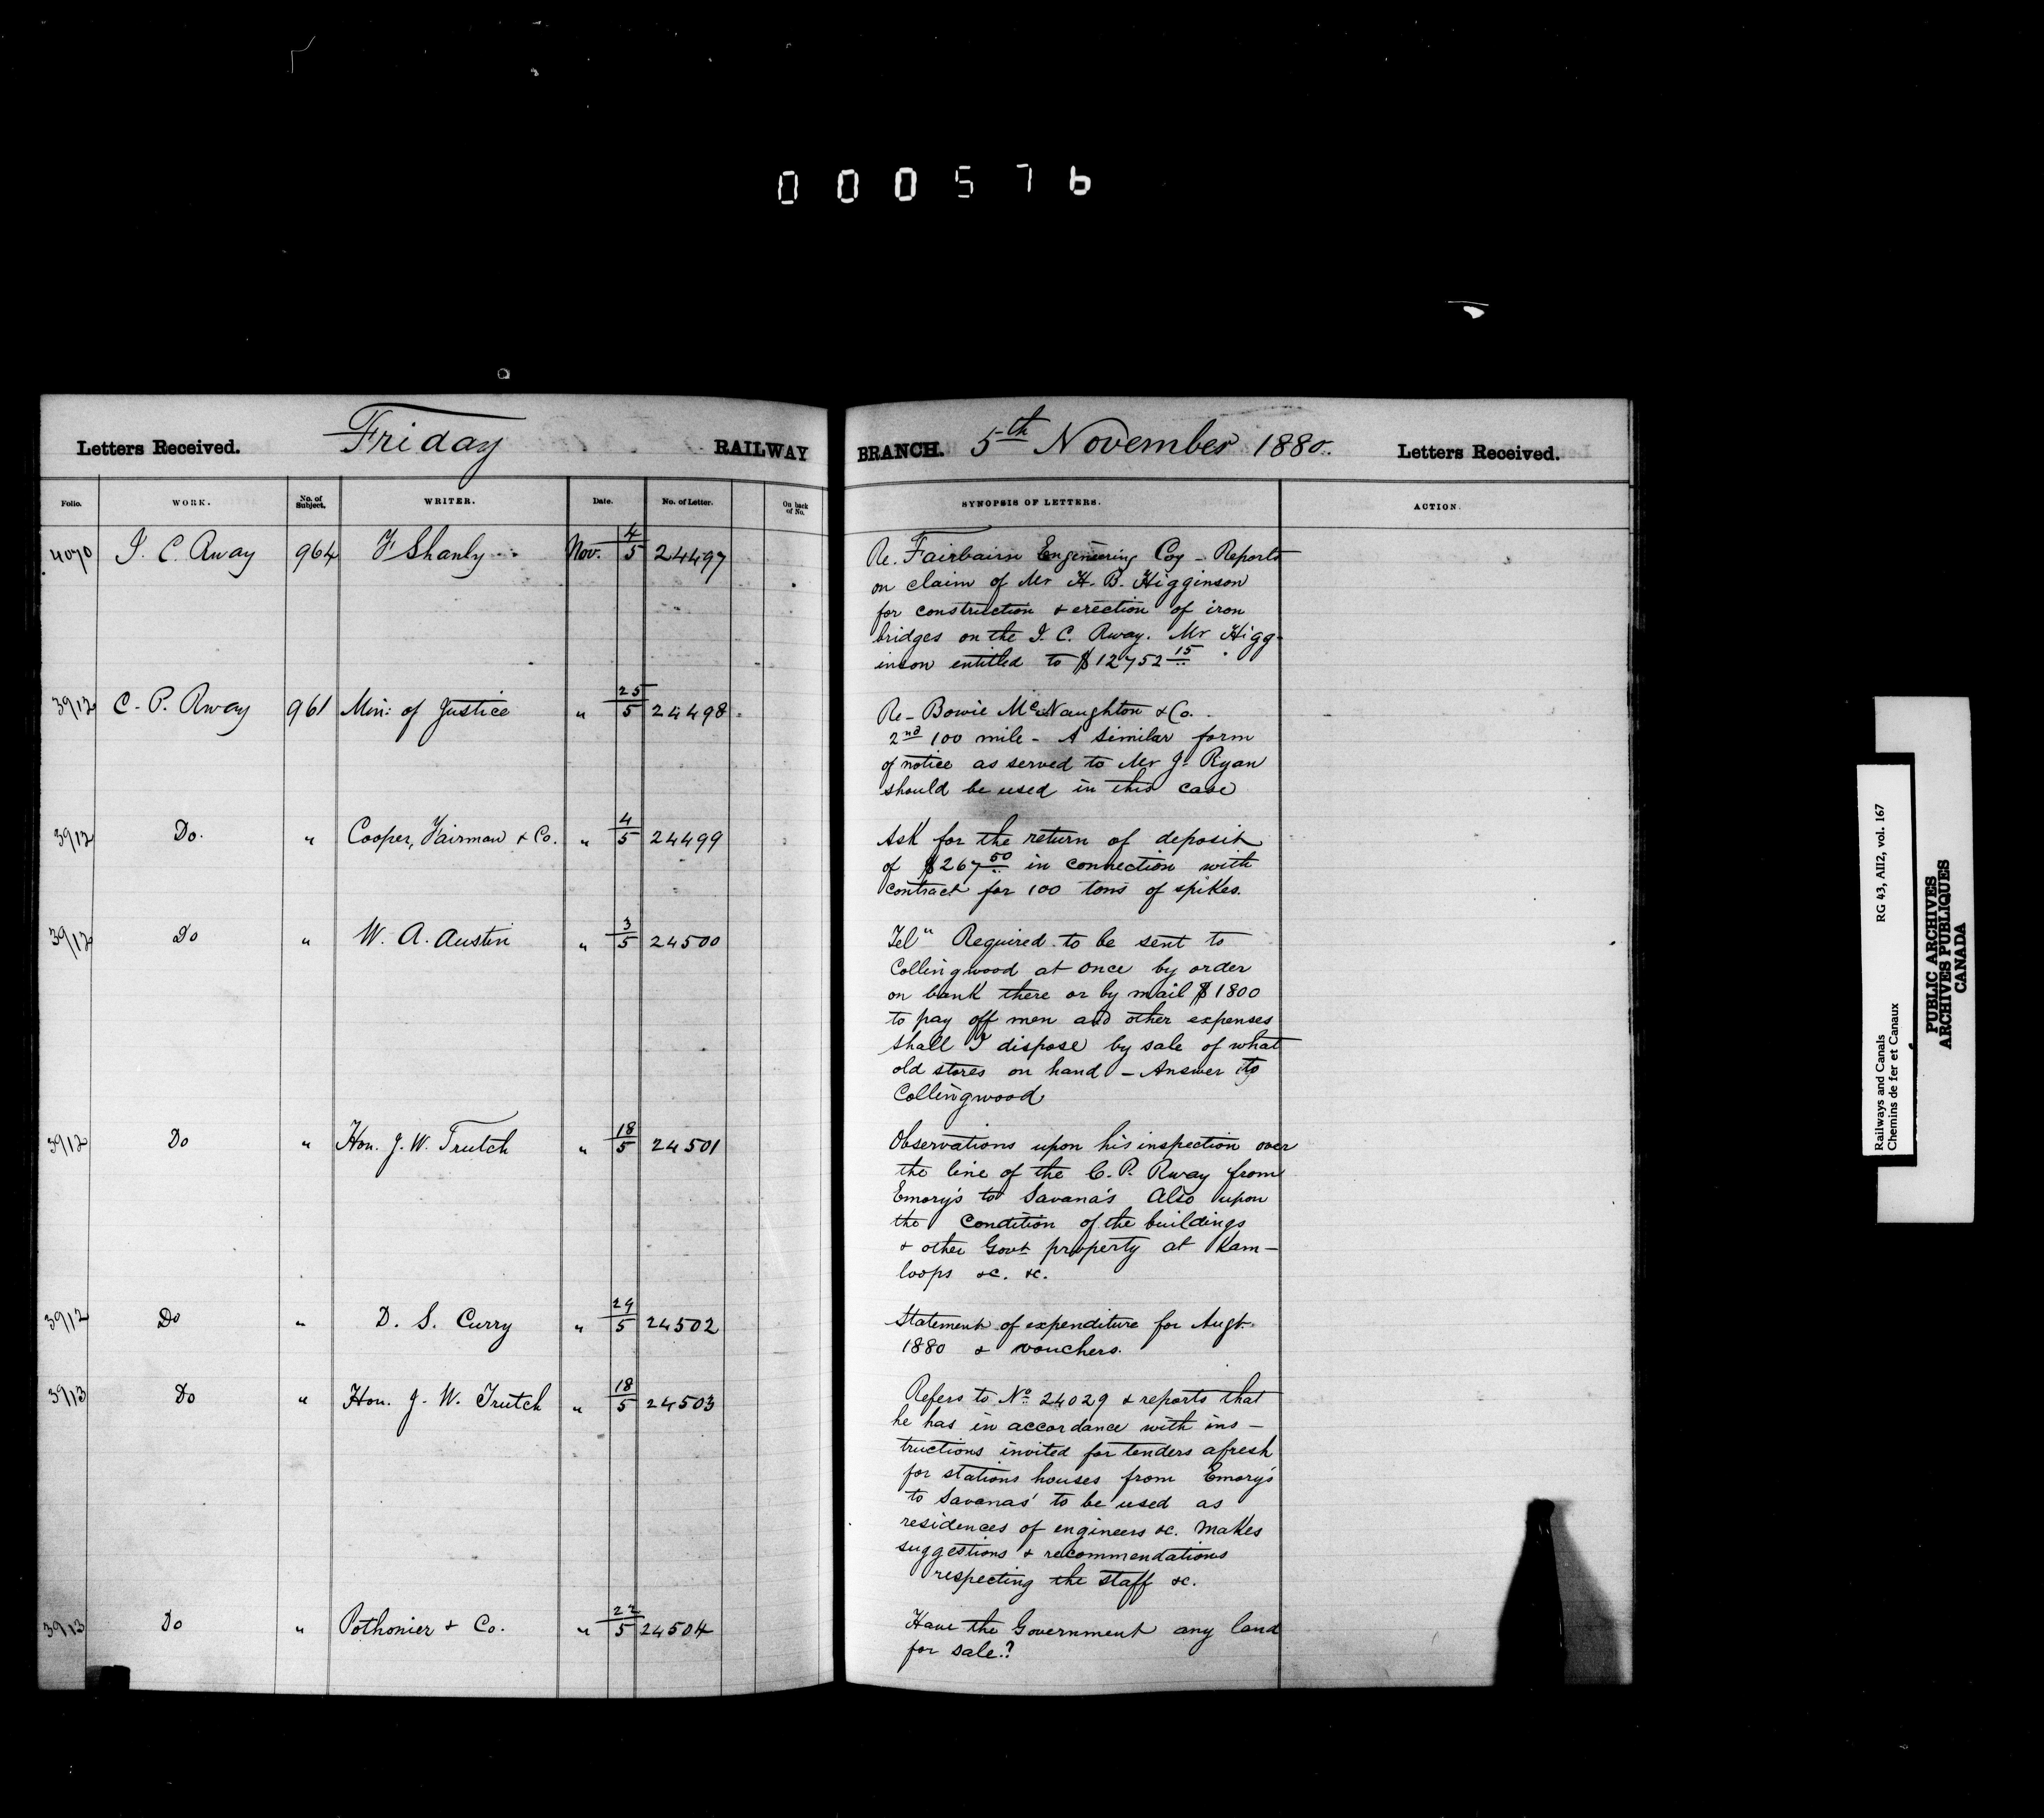 000576
Letters Received. Friday RAILWAY BRANCH. 5th November 1880. Letters Received.
Folio. WORK. No. of Subject. WRITER. Date. No. of Letter. On back of No. SYNOPSIS OF LETTERS. ACTION.
4070 I. C. Rway 964 F Shanly Nov. 4/5 24497 Re. Fairbairn Engineering Coy - Reports
on claim of Mr H. B. Higginson
for construction & erection of iron
bridges on the I. C. Rway. Mr Higg-
inson entitled to $12752 15
3912 C. P. Rway 961 Min: of Justice " 25/5 24498 Re - Bowie McNaughton & Co.
2nd 100 mile - A similar form
of notice as served to Mr J. Ryan
should be used in this case
3912 Do. " Cooper, Fairman & Co. " 4/5 24499 Ask for the return of deposit
of $267 50 in connection with
contract for 100 tons of spikes.
3912 Do " W. A. Austin " 3/5 24500 Tel" Required to be sent to
Collingwood at once by order
on bank there or by mail $1800
to pay off men and other expenses
shall I dispose by sale of what
old stores on hand - Answer to
Collingwood
3912 Do " Hon. J. W. Trutch " 18/5 24501 Observations upon his inspection over
the line of the C. P. Rway from
Emory's to Savana's Also upon
the condition of the buildings
& other Govt property at Kam-
loops &c. &c.
3912 Do " D. S. Curry " 29/5 24502 Statement of expenditure for Augt.
1880 & vouchers.
3913 Do " Hon. J. W. Trutch " 18/5 24503 Refers to No. 24029 & reports that
he has in accordance with ins-
tructions invited for tenders afresh
for stations houses from Emory's
to Savanas' to be used as
residences of engineers &c. Makes
suggestions & recommendations
respecting the staff &c.
3913 Do " Pothonier & Co. " 22/5 24504 Have the Government any land
for sale.?
Railways and Canals RG 43, AII2, vol. 167
Chemins de fer et Canaux
PUBLIC ARCHIVES
ARCHIVES PUBLIQUES
CANADA